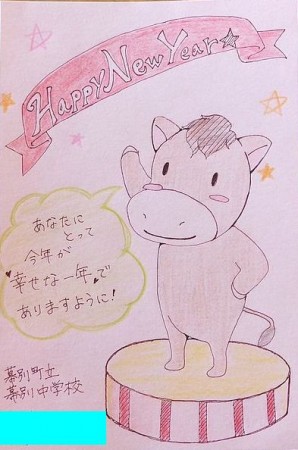 Happy New Year☆
あなたに
とって
今年が
♥幸せな一年♥で
ありますように!
幕別町立
幕別中学校